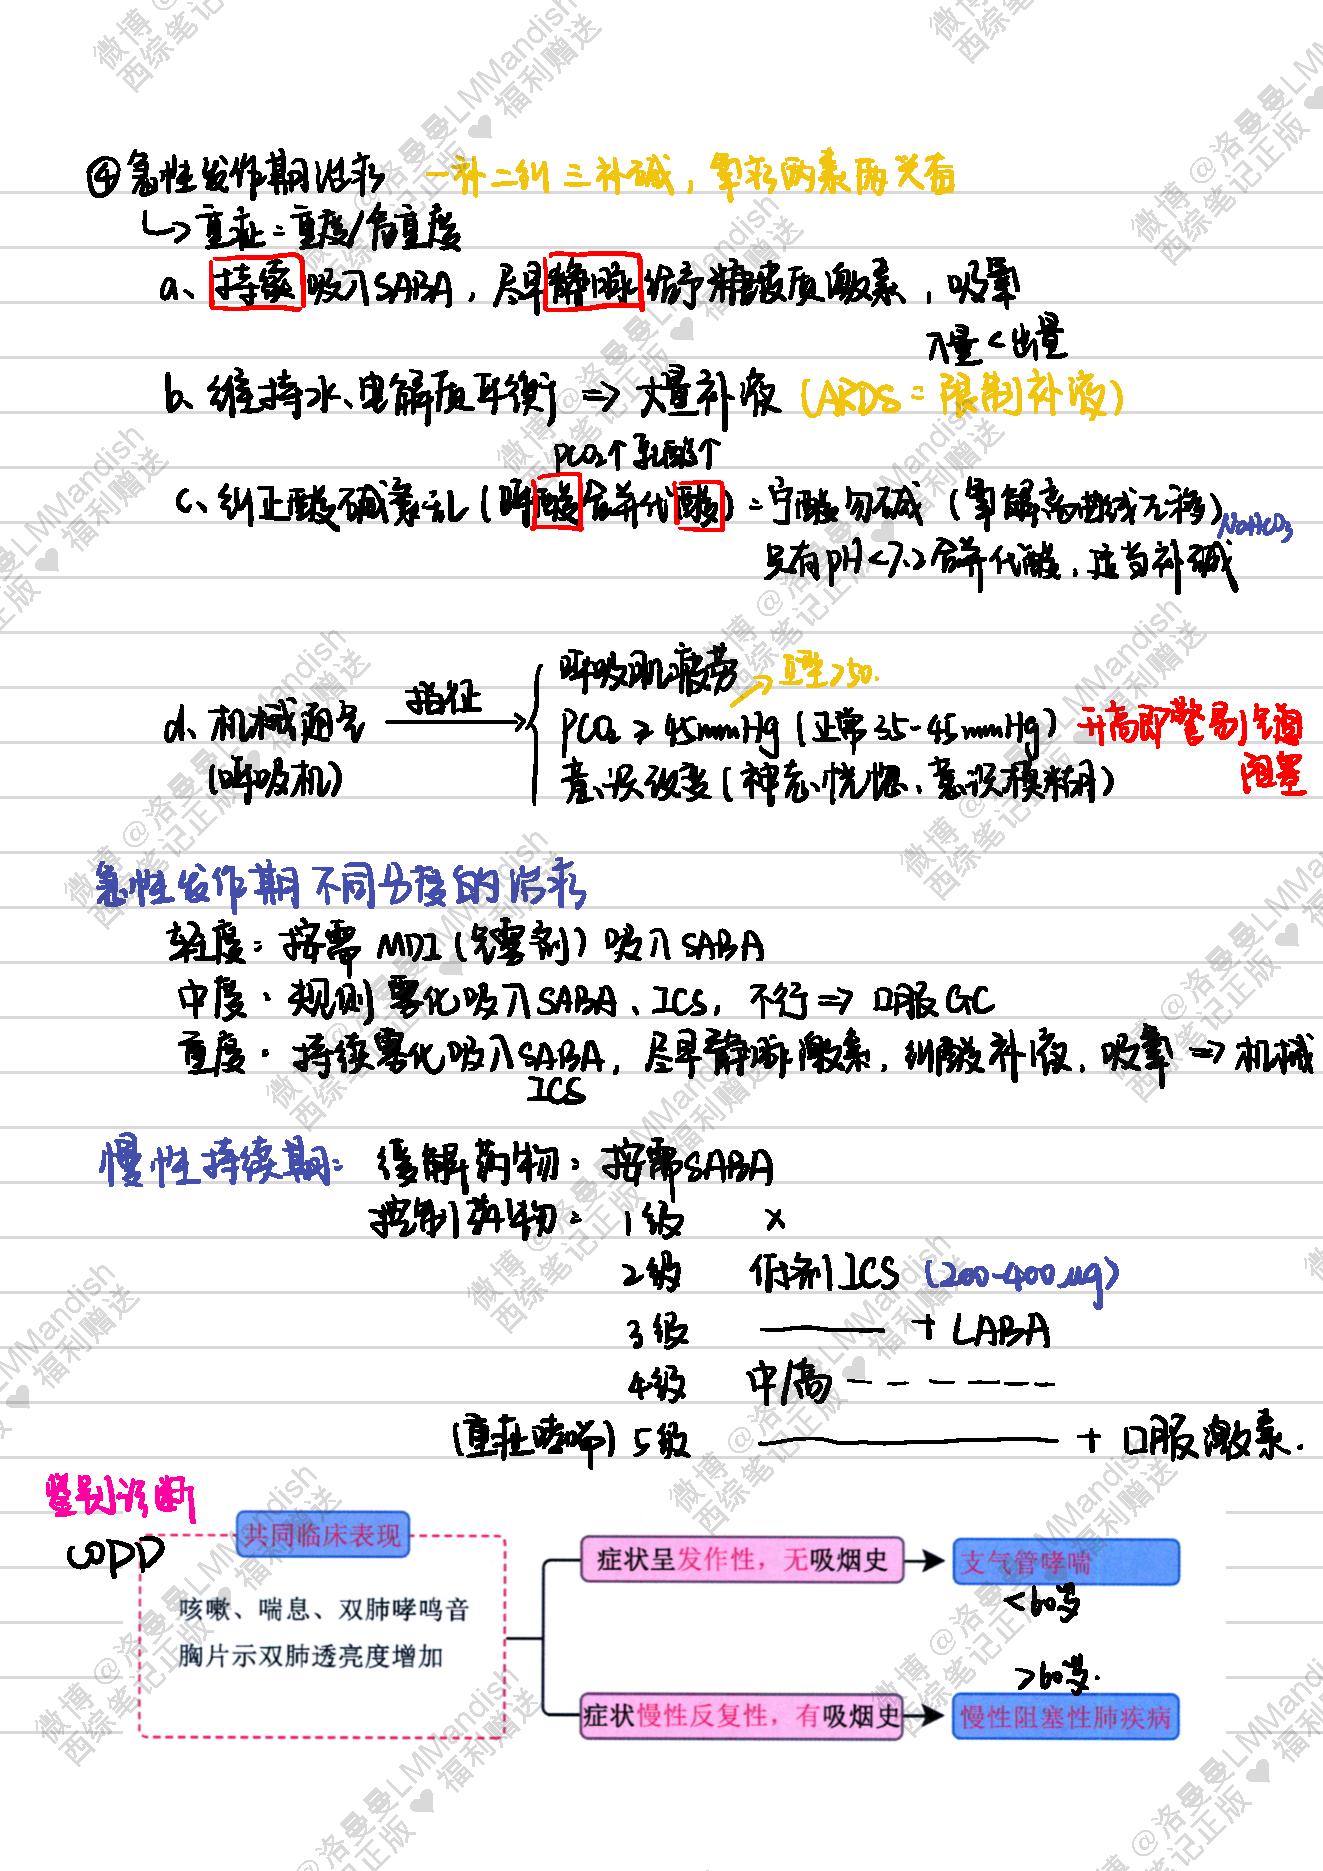 ④急性发作期治疗 一补二纠三补碱，氧疗两素两兴奋
↳重症=重度/危重度
a、持续吸入SABA，尽早静脉给予糖皮质激素，吸氧
入量<出量
b、维持水、电解质平衡 => 大量补液（ARDS=限制补液）
PCO₂↑ 乳酸↑
c、纠正酸碱紊乱（呼酸合并代酸）=宁酸勿碱（氧解离曲线右移）
NaHCO₃
只有pH<7.2合并代酸，适当补碱
呼吸肌疲劳
→ >50.
d、机械通气 指征 PCO₂≥45mmHg（正常35-45mmHg）升高即警惕气道阻塞
（呼吸机） 意识改变（神志恍惚、意识模糊）
急性发作期不同分度的治疗
轻度：按需MDI（气雾剂）吸入SABA
中度：规则雾化吸入SABA、ICS，不行=>口服GC
重度：持续雾化吸入SABA，尽早静脉激素，纠酸补液，吸氧=>机械
ICS
慢性持续期：缓解药物：按需SABA
控制药物：1级 ×
2级 低剂ICS（200-400μg）
3级 —— + LABA
4级 中/高 - - - - - -
（重症哮喘）5级 —— + 口服激素.
鉴别诊断
COPD
共同临床表现
咳嗽、喘息、双肺哮鸣音
胸片示双肺透亮度增加
症状呈发作性，无吸烟史
支气管哮喘
<60岁
>60岁.
症状慢性反复性，有吸烟史
慢性阻塞性肺疾病
微博@洛曼曼LMMandish
西综笔记正版♥福利赠送